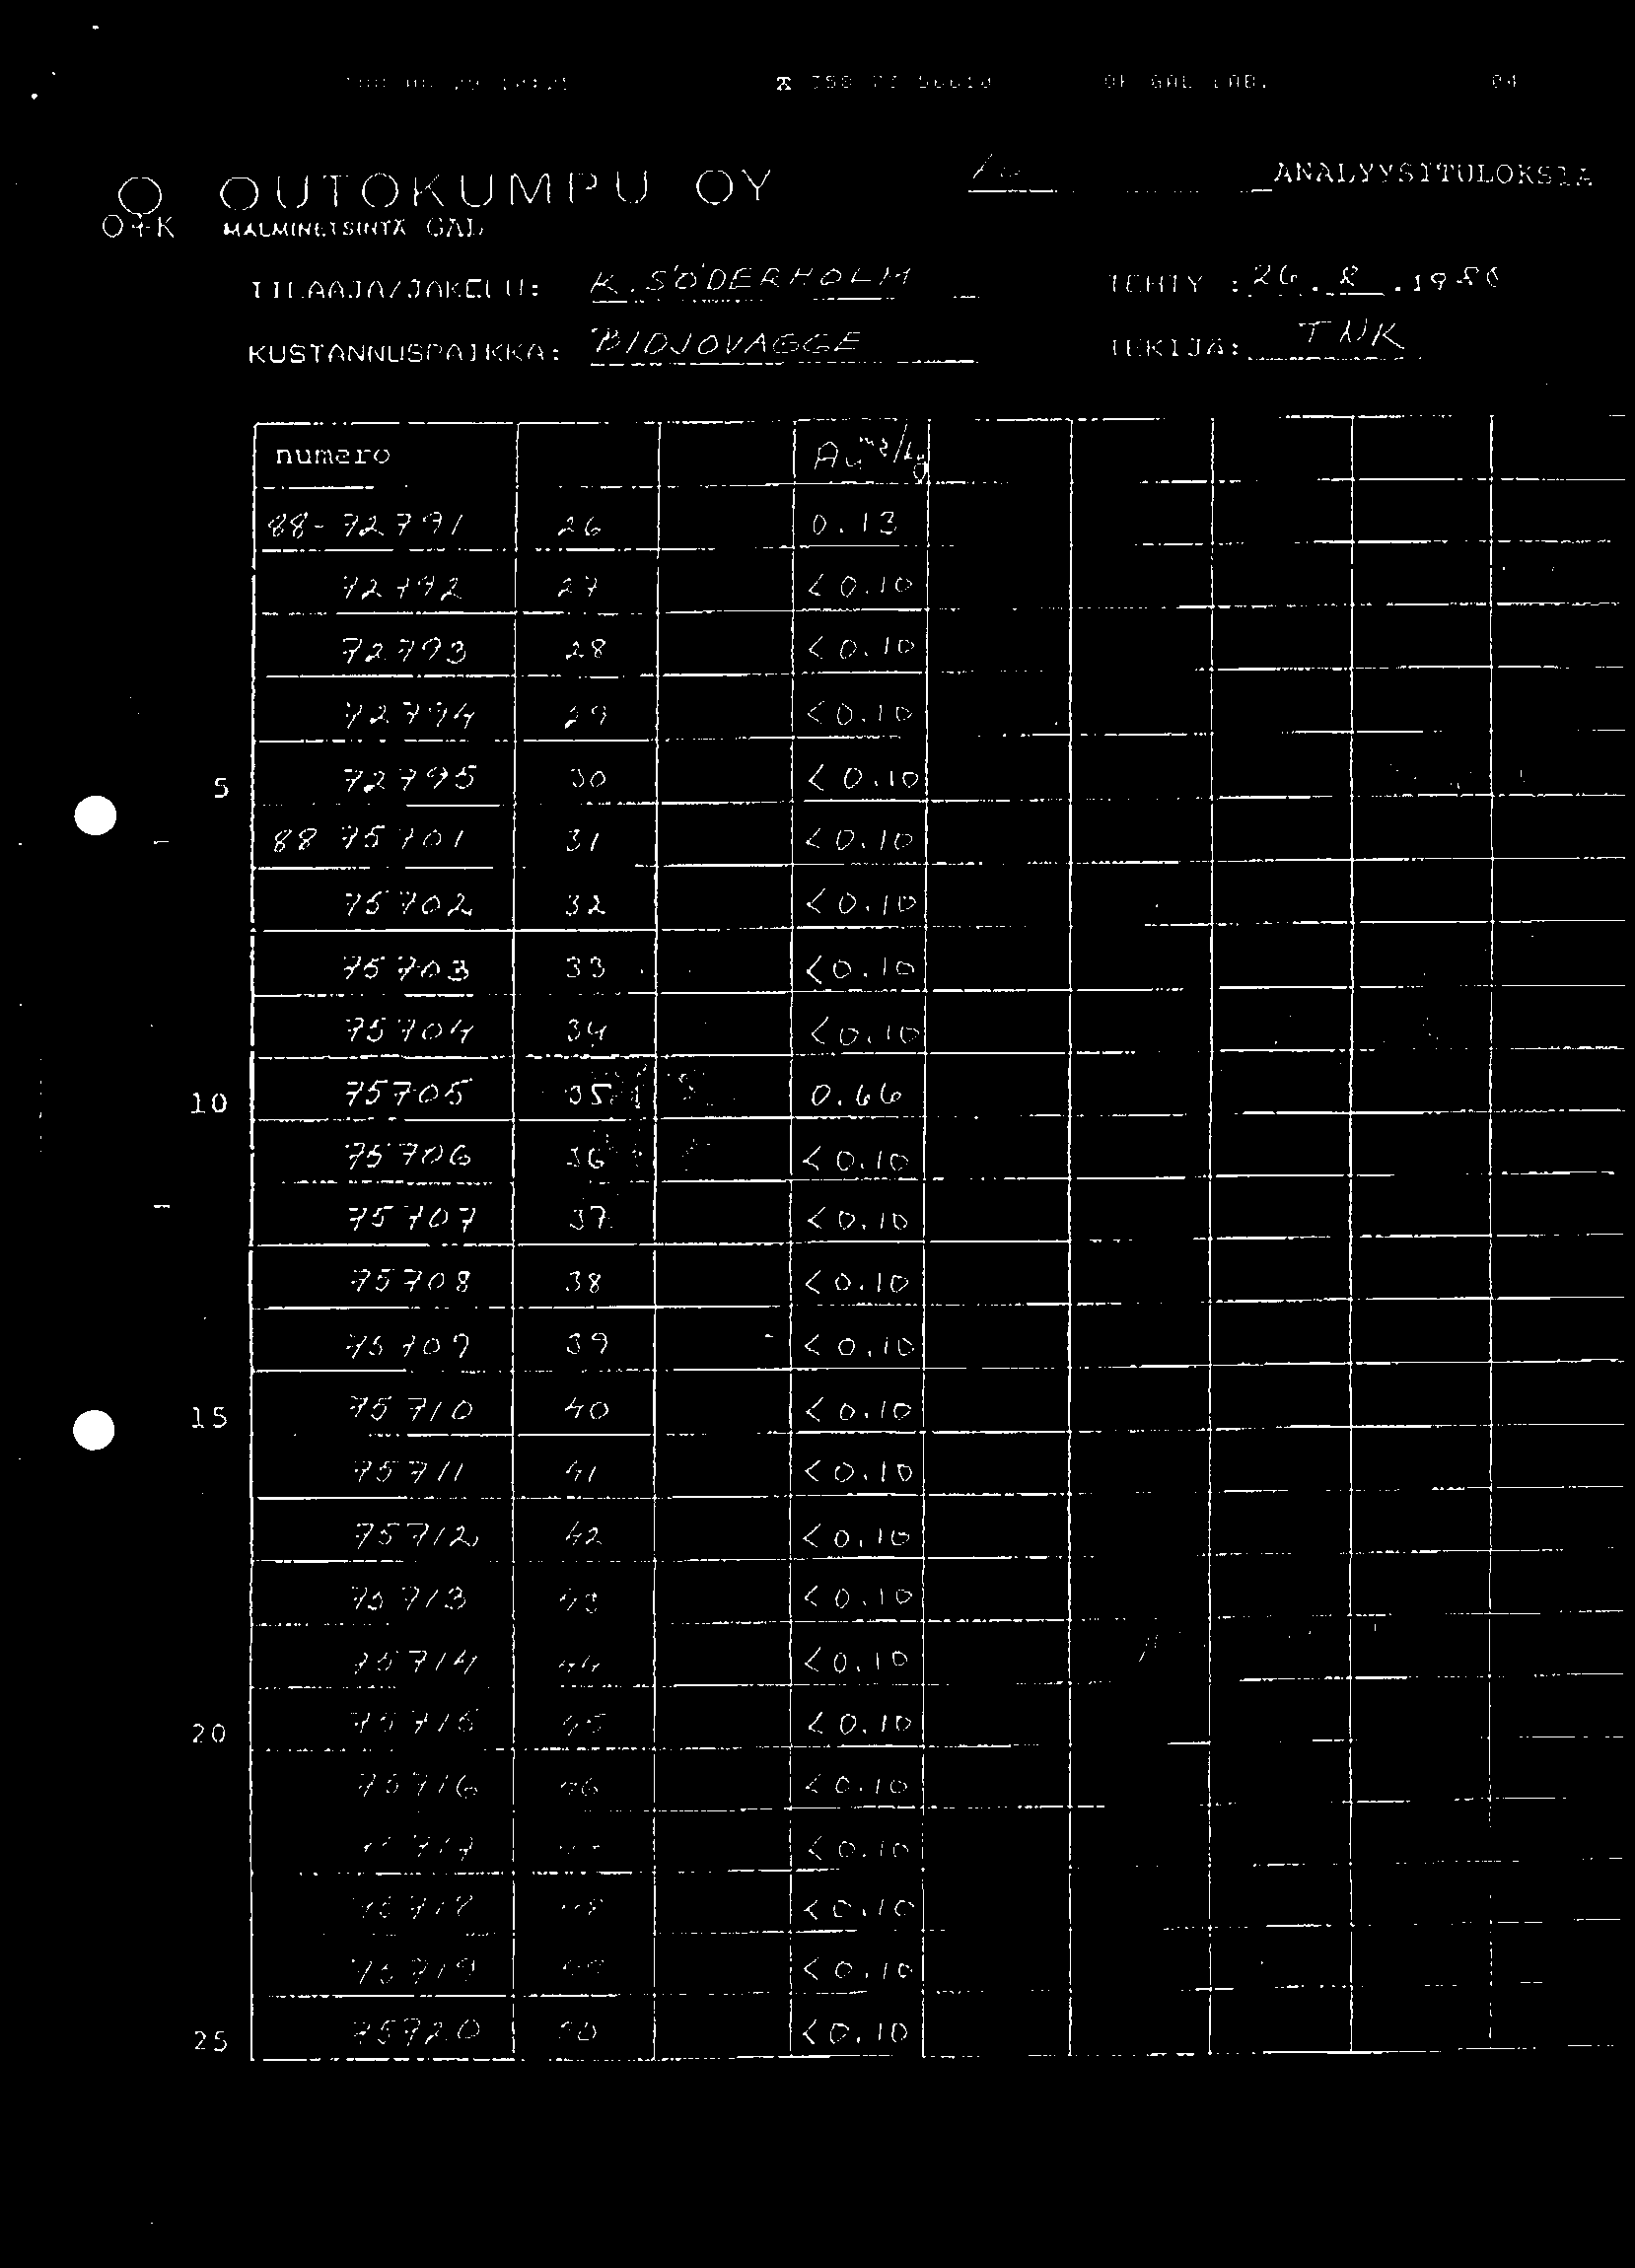 OK GAL LAB. 04
OUTOKUMPU OY ANALYYSITULOKSIA
MALMINETSINTÄ GAL
TILAAJA/JAKELU: K. SÖDERHOLM TEHTY : 26. 8 .1988
KUSTANNUSPAIKKA: BIDJOVAGGE TEKIJÄ: TNK
numero Au mg/kg
88-72791 26 0.13
72792 27 <0.10
72793 28 <0.10
72794 29 <0.10
5 72795 30 <0.10
88 75701 31 <0.10
75702 32 <0.10
75703 33 <0.10
75704 34 <0.10
10 75705 35 0.66
75706 36 <0.10
75707 37 <0.10
75708 38 <0.10
75709 39 <0.10
15 75710 40 <0.10
75711 41 <0.10
75712 42 <0.10
75713 43 <0.10
75714 44 <0.10
20 75715 45 <0.10
75716 46 <0.10
75717 47 <0.10
75718 48 <0.10
75719 49 <0.10
25 75720 50 <0.10